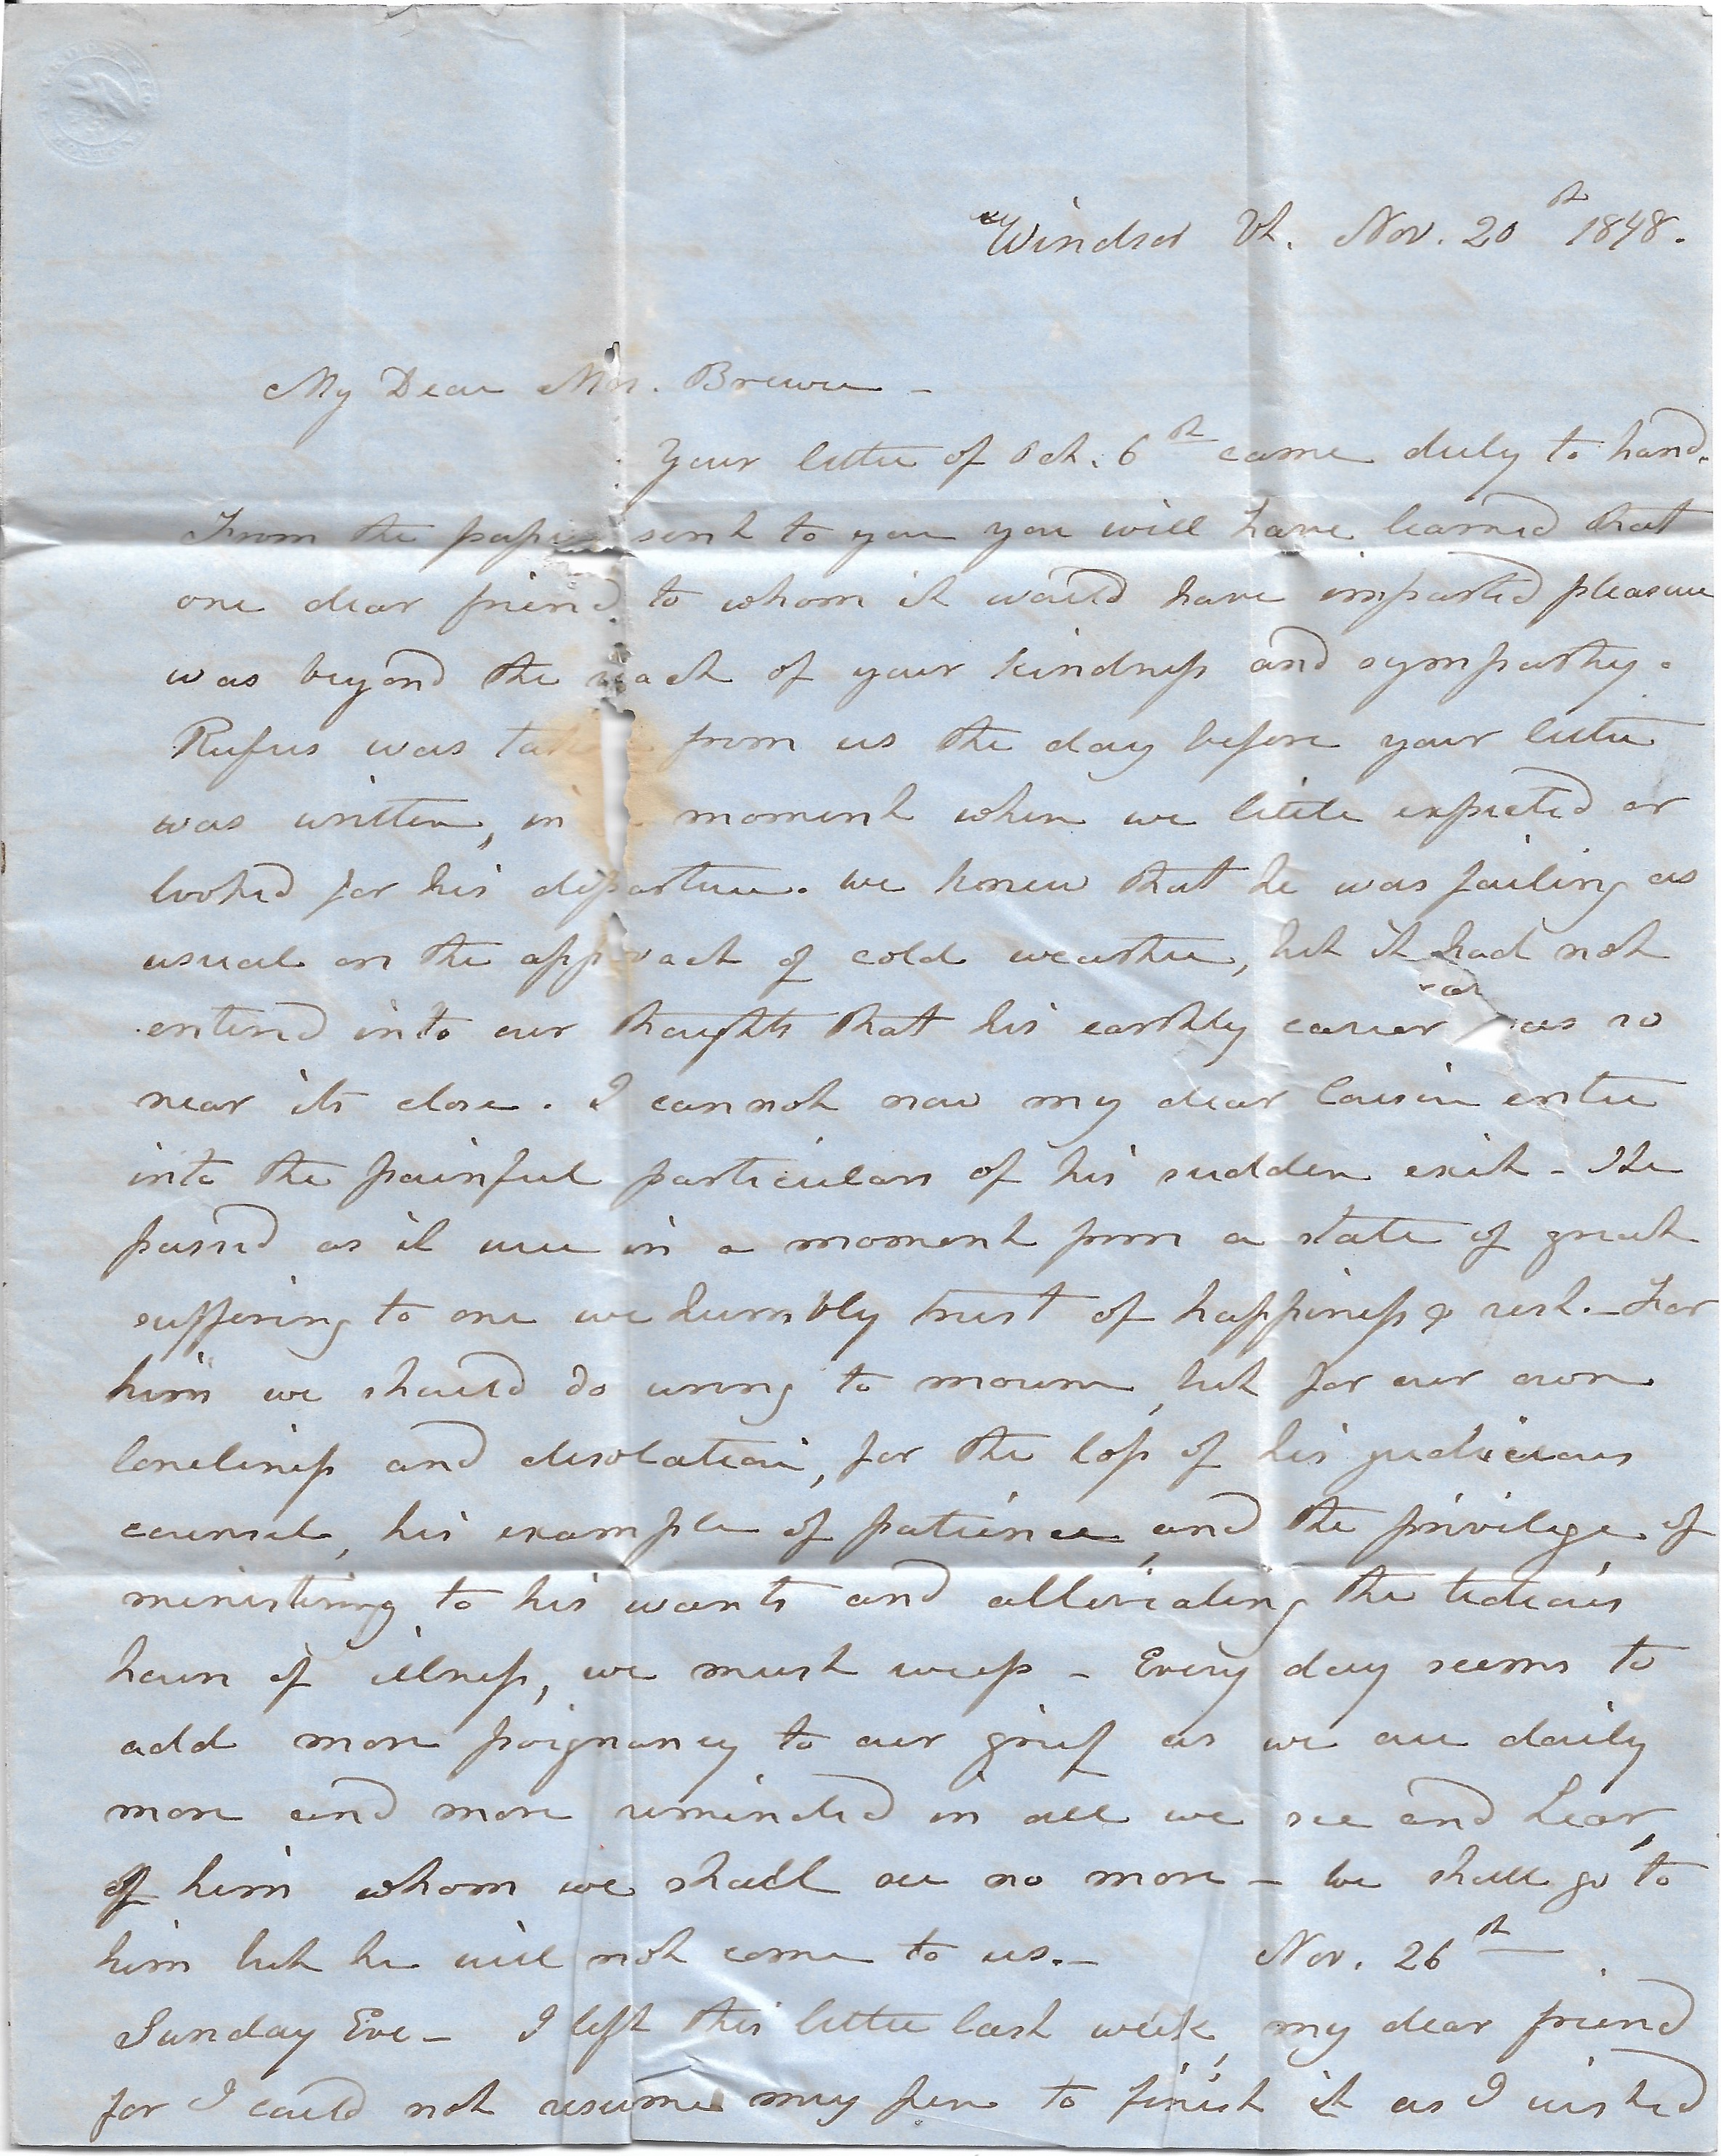 Windsor Vt. Nov. 20th 1848.
My Dear Mrs. Brewer -
Your letter of Oct. 6th came duly to hand.
From the paper sent to you you will have learned that
one dear friend to whom it would have imparted pleasure
was beyond the reach of your kindness and sympathy.
Rufus was taken from us the day before your letter
was written, in moment when we little expected or
looked for his departure. we knew that he was failing as
usual on the approach of cold weather, but it had not
entered into our thoughts that his earthly career was so
near its close. I cannot now my dear Cousin enter
into the painful particulars of his sudden exit - He
passed as it were in a moment from a state of great
suffering to one we humbly trust of happiness & rest. - For
him we should do wrong to mourn, but for our own
loneliness and desolation, for the loss of his judicious
counsel, his example of patience, and the privilege of
ministering to his wants and alleviating the tedious
hours of illness, we must weep - Every day seems to
add more poignancy to our grief as we are daily
more and more reminded in all we see and hear,
of him whom we shall see no more - we shall go to
him but he will not come to us. - Nov. 26th
Sunday Eve - I left this letter last week, my dear friend
for I could not resume my pen to finish it as I wished